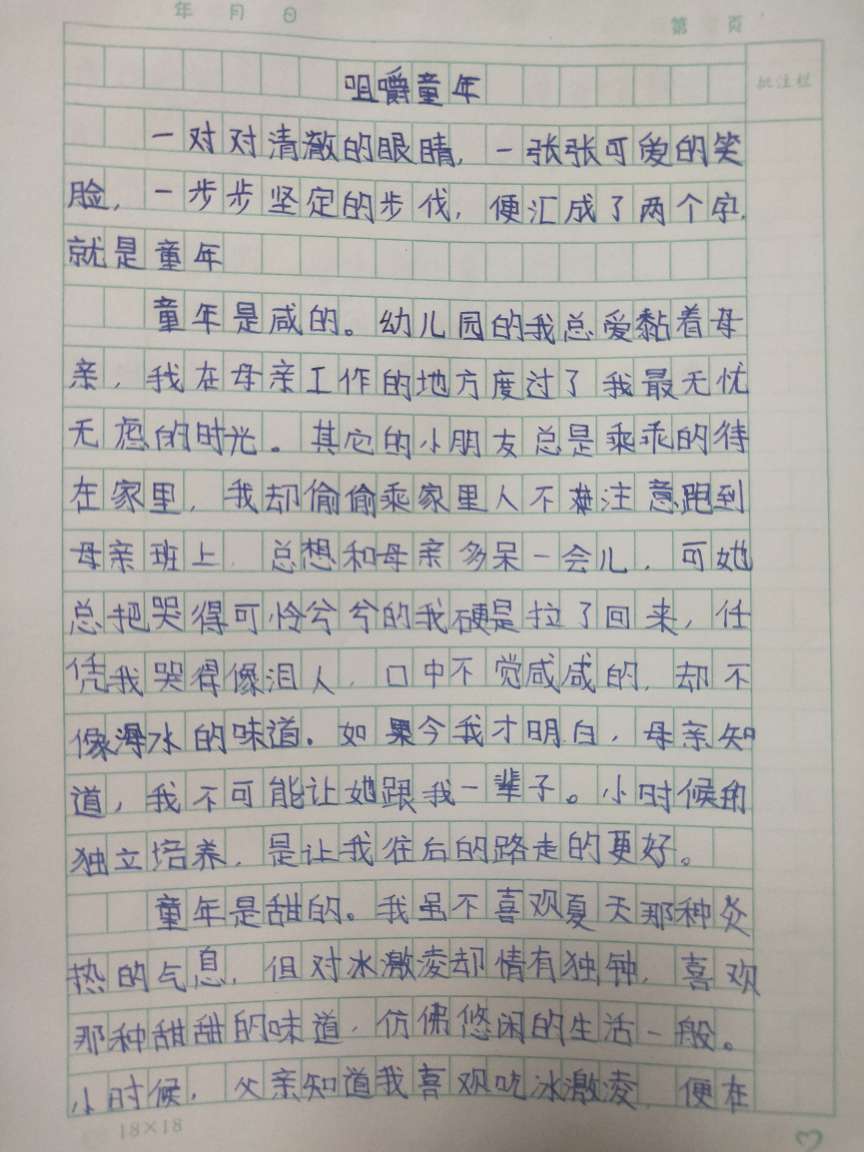 年 月 日
第 页
批注栏
咀嚼童年
一对对清澈的眼睛，一张张可爱的笑
脸，一步步坚定的步伐，便汇成了两个字，
就是童年
童年是咸的。幼儿园的我总爱黏着母
亲，我在母亲工作的地方度过了我最无忧
无虑的时光。其它的小朋友总是乘乖的待
在家里，我却偷偷乘家里人不注意跑到
母亲班上，总想和母亲多呆一会儿，可她
总把哭得可怜兮兮的我硬是拉了回来，任
凭我哭得像泪人，口中不觉咸咸的，却不
像海水的味道。如果今我才明白，母亲知
道，我不可能让她跟我一辈子。小时候的
独立培养，是让我往后的路走的更好。
童年是甜的。我虽不喜欢夏天那种炙
热的气息，但对冰激凌却情有独钟，喜欢
那种甜甜的味道，仿佛悠闲的生活一般。
小时候，父亲知道我喜欢吃冰激凌，便在
18×18